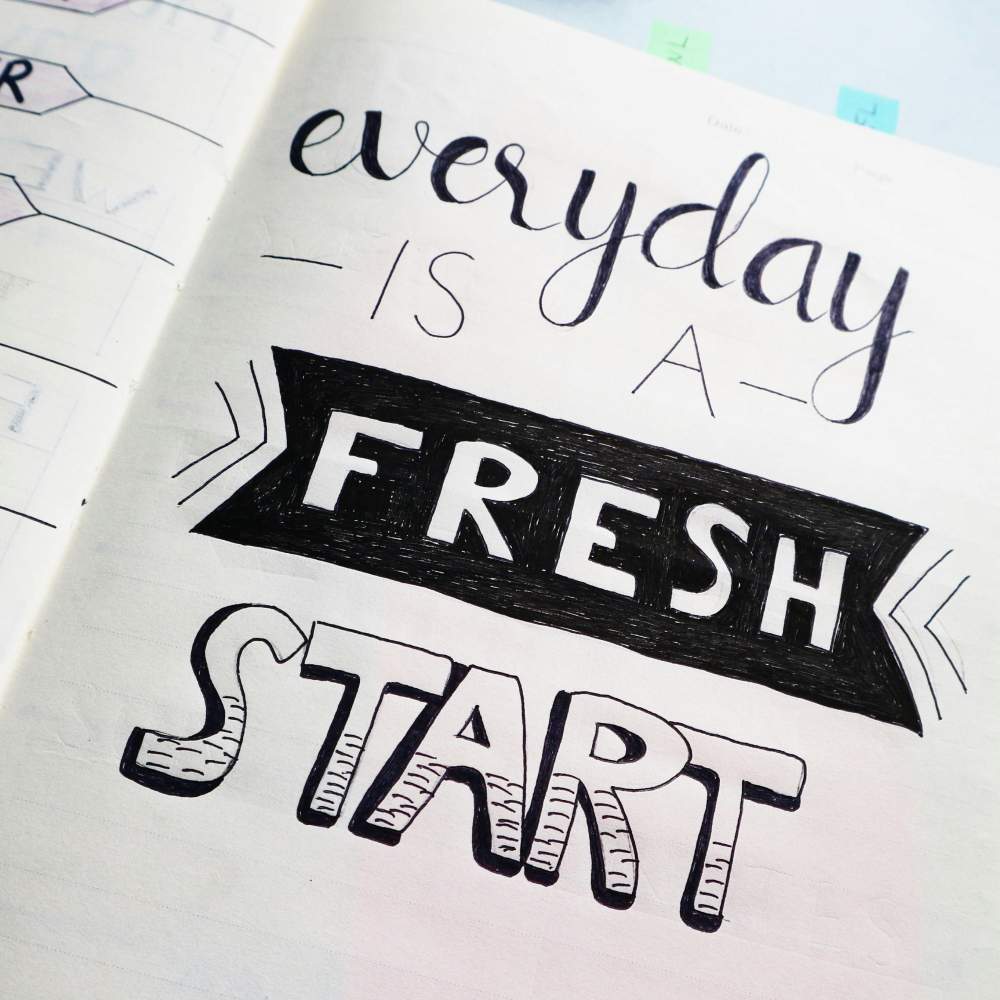 everyday
– IS A –
FRESH
START
R